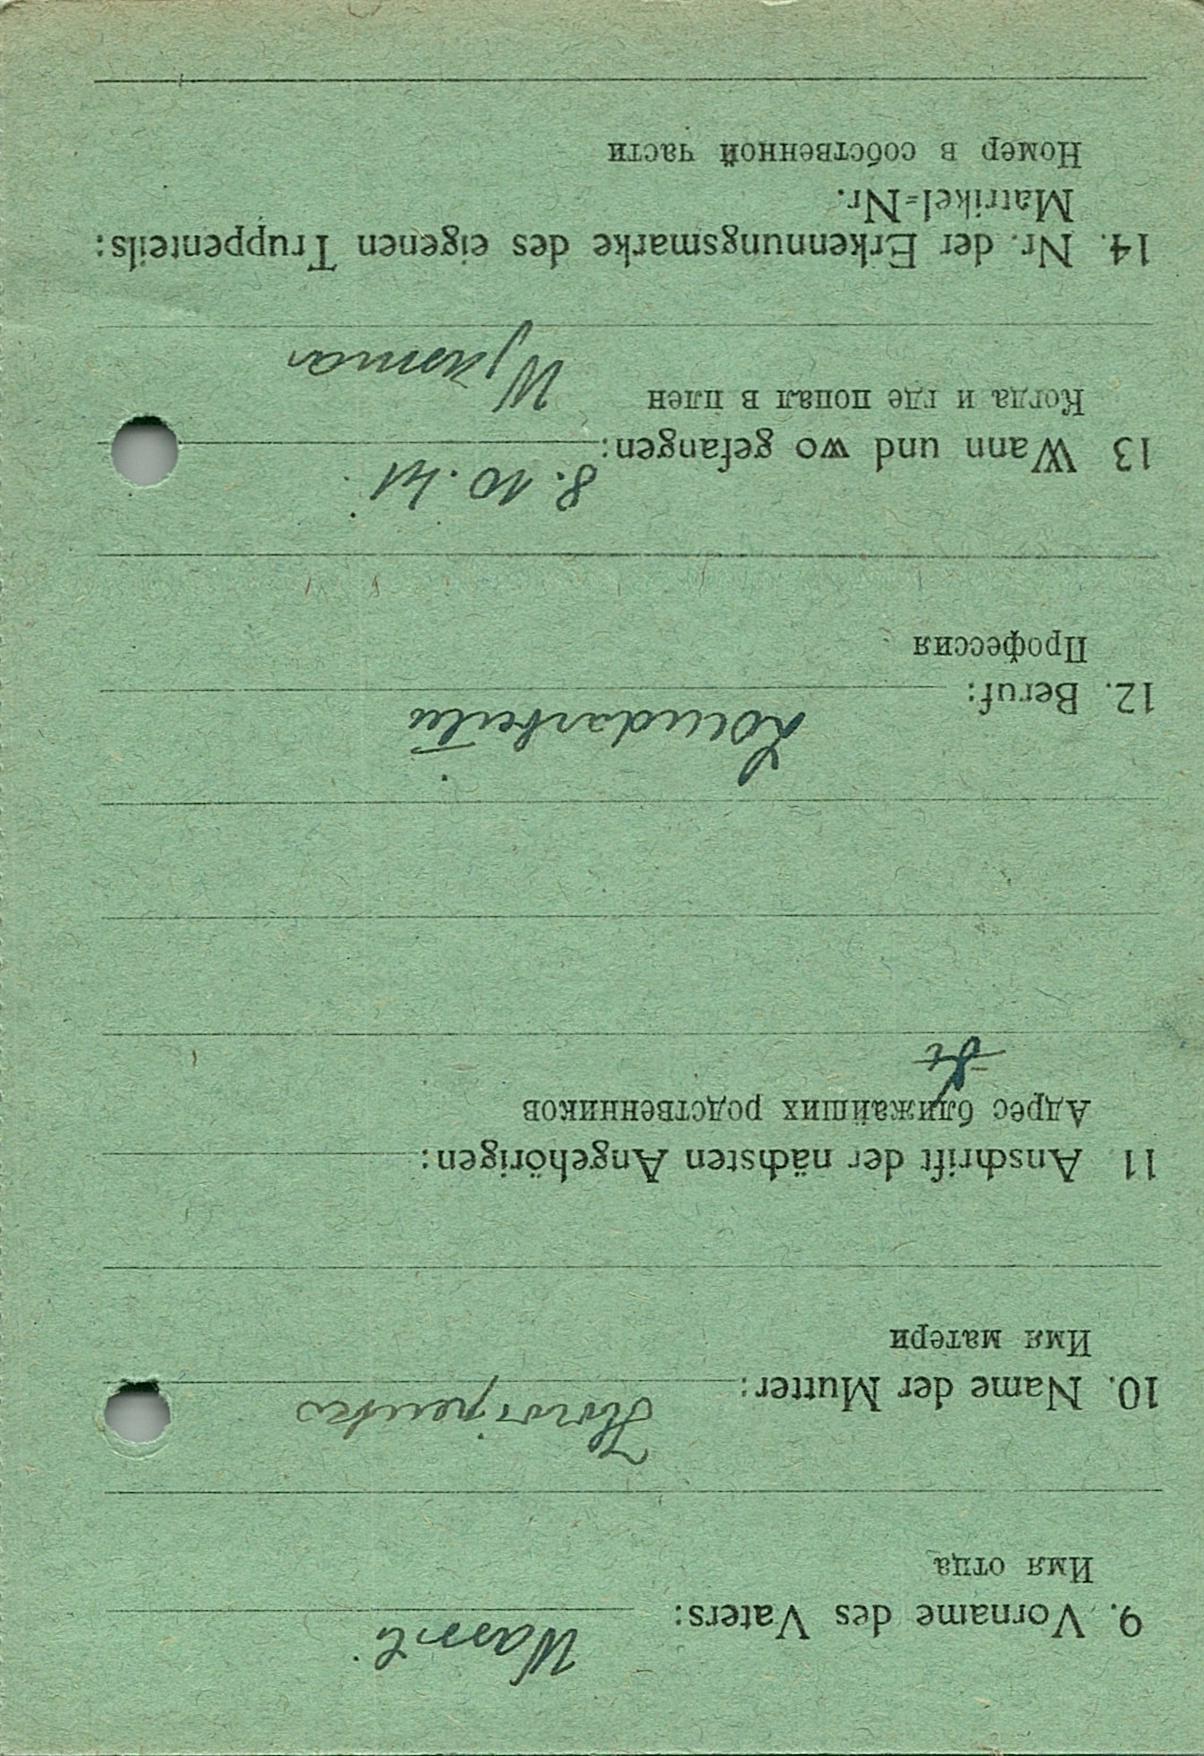 9. Vorname des Vaters: Wassili
Имя отца
10. Name der Mutter:
Имя матери
11 Anschrift der nächsten Angehörigen:
Адрес ближайших родственников
12. Beruf: Landarbeiter
Профессия
13 Wann und wo gefangen: 8.10.41
Когда и где попал в плен Wjasma
14. Nr. der Erkennungsmarke des eigenen Truppenteils:
Matrikel=Nr.
Номер в собственной части